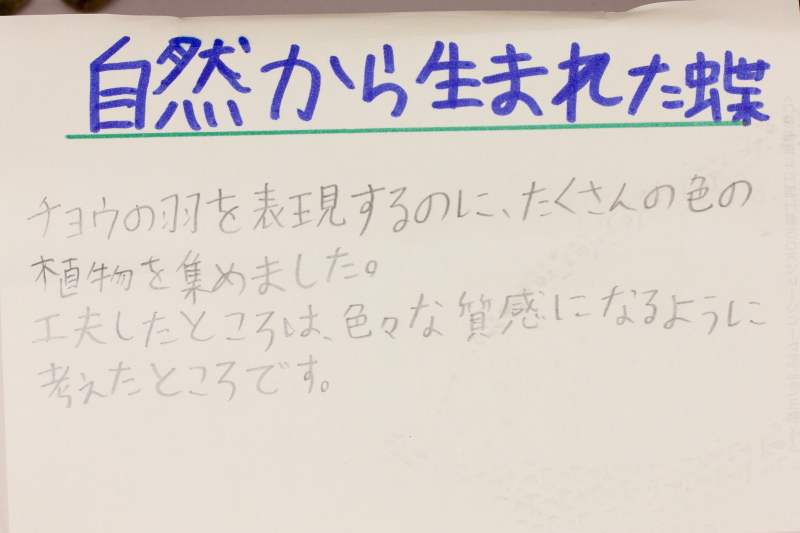 自然から生まれた蝶
チョウの羽を表現するのに、たくさんの色の
植物を集めました。
工夫したところは、色々な質感になるように
考えたところです。